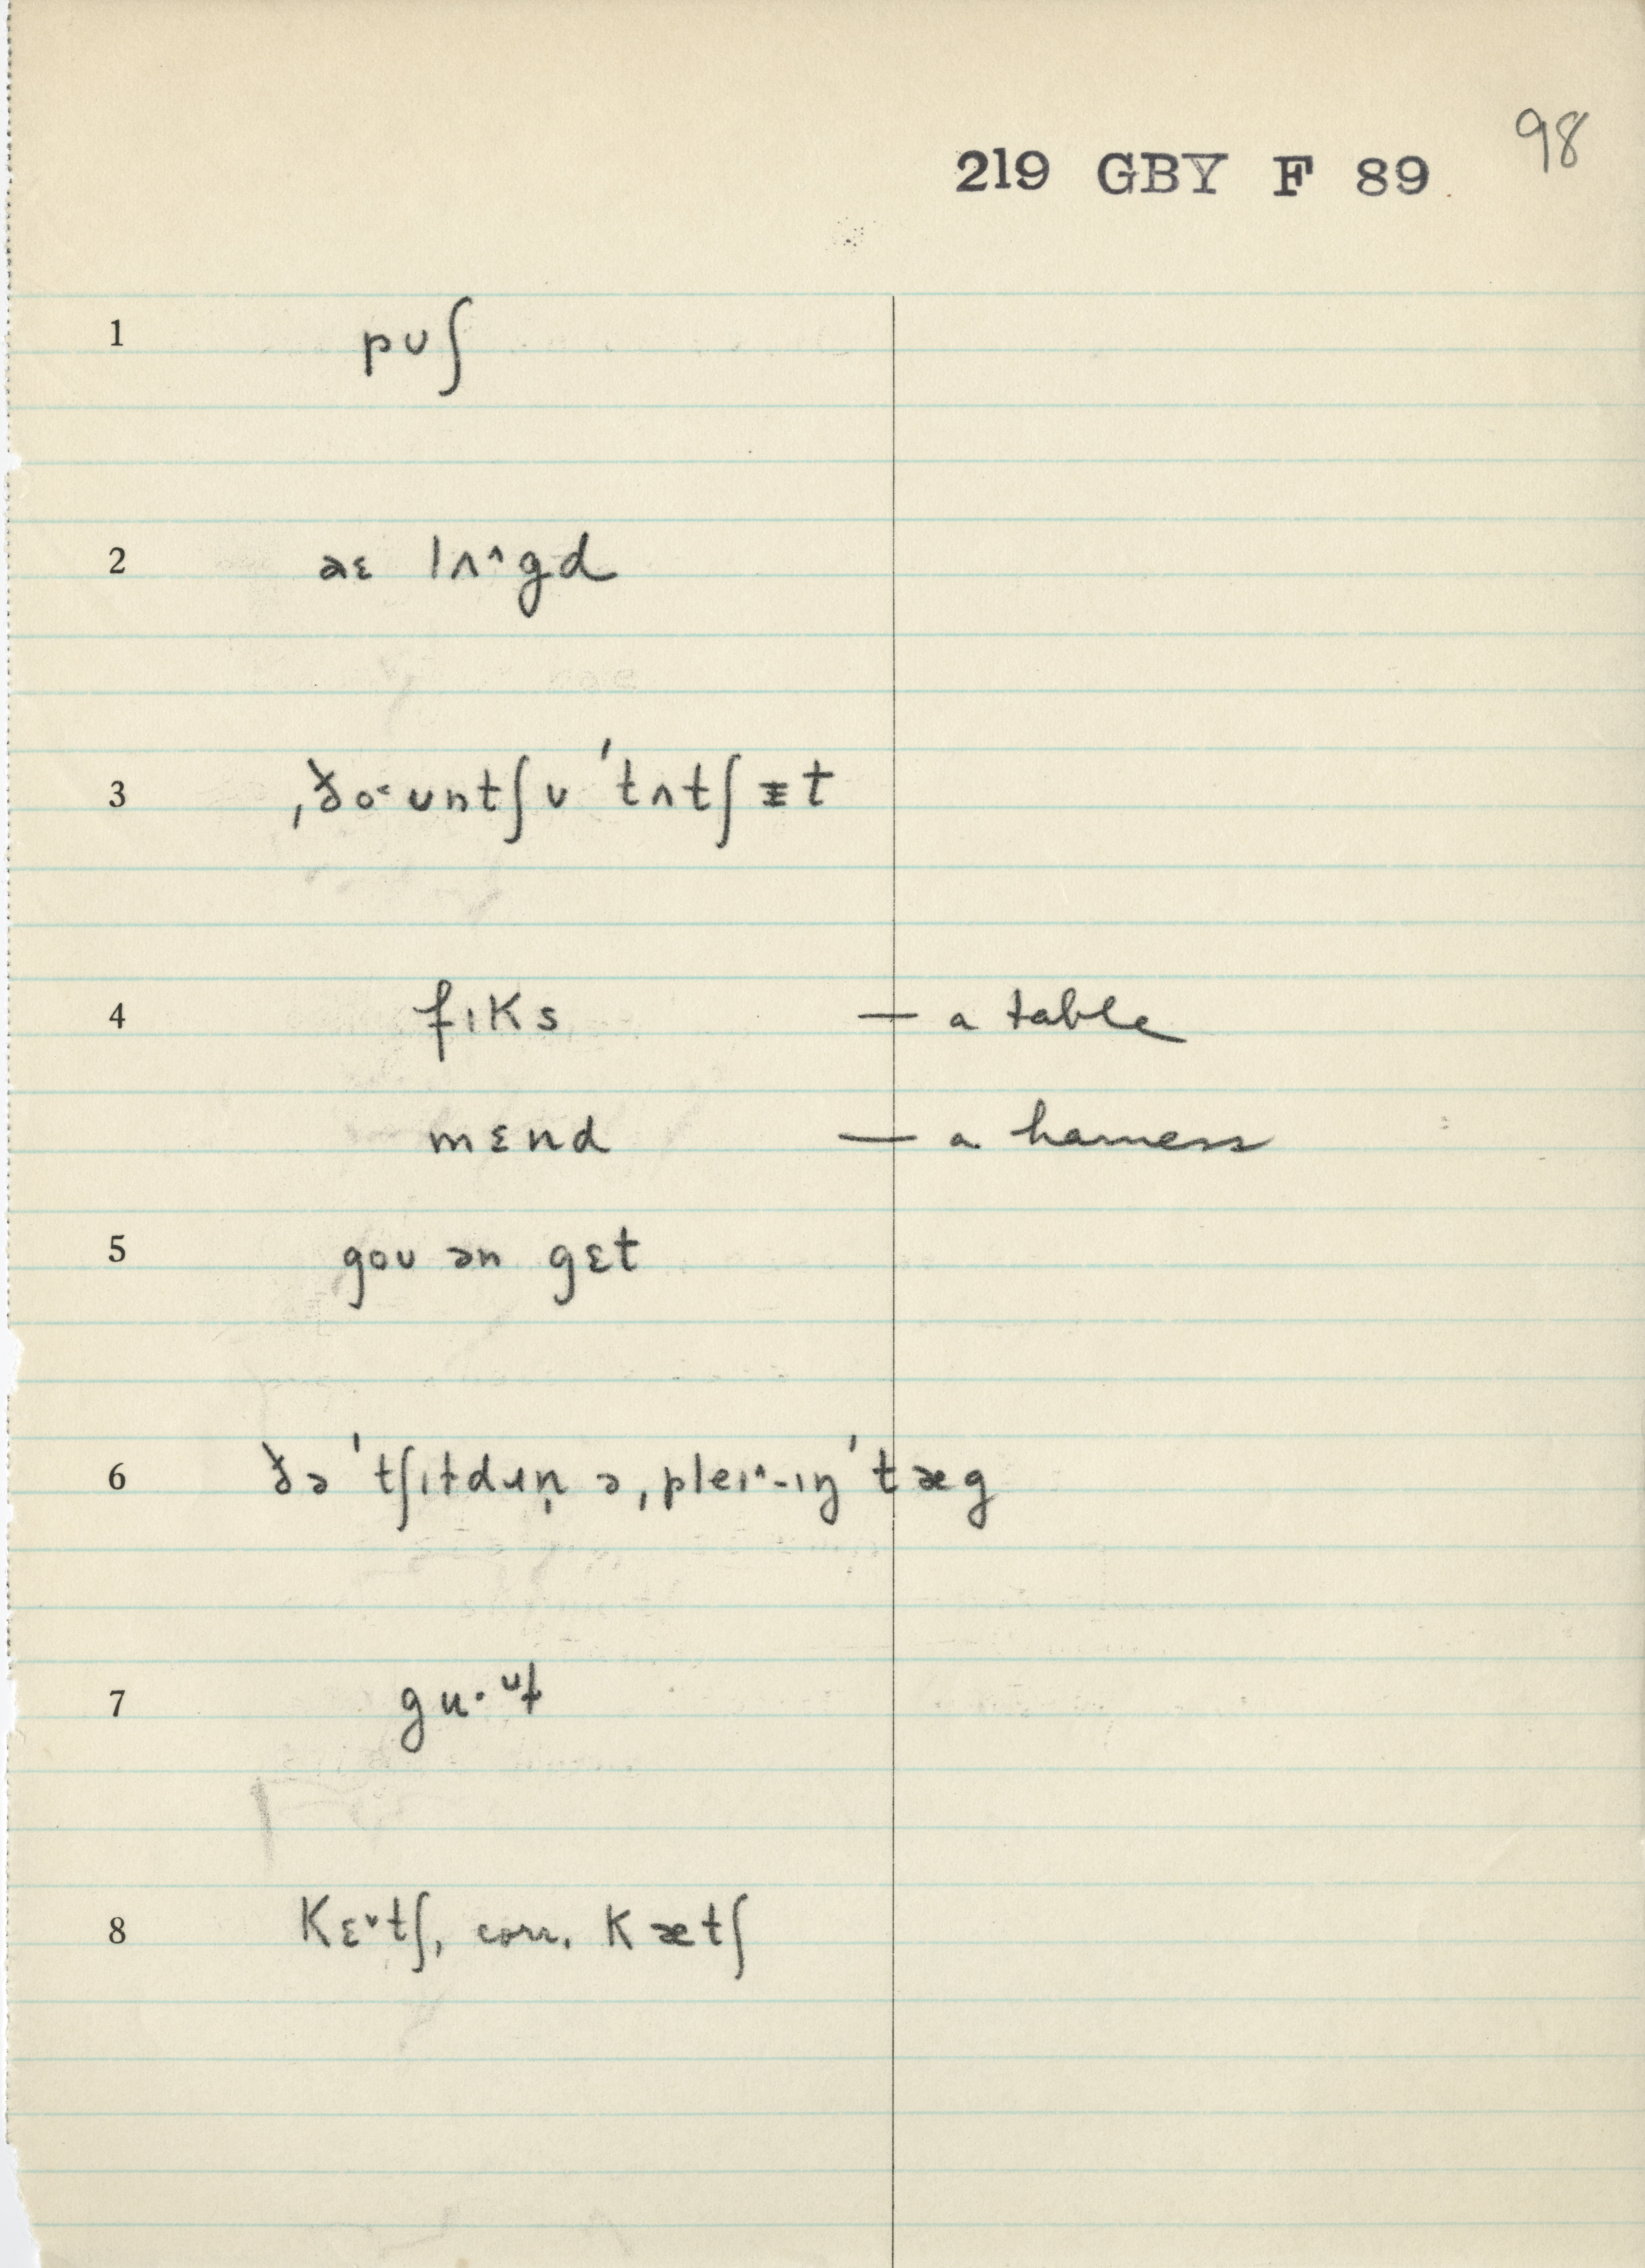 98
219 GBY F 89
1 pʊʃ
2 aɛ lʌ^gd
3 ˌðo˂ʊntʃʊ ˈtʌtʃ ɪt
4 fɪks — a table
mɛnd — a harness
5 goʊ ən gɛt
6 ðə ˈtʃɪɫdɹn̩ ə ˌpleɪ^-ɪŋ ˈtæg
7 gu·ᶷɫ
8 kɛ˅tʃ, corr. kætʃ